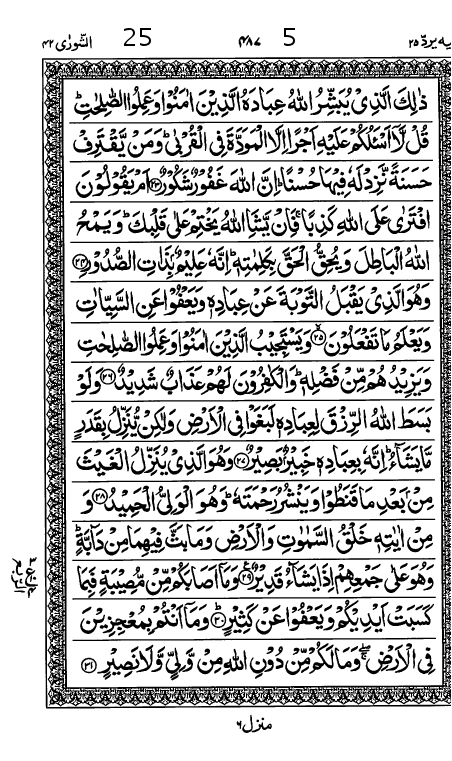 الشورٰی ۴۲ 25 ۴۸۷ 5 الیه یردّ ۲۵
ذٰلِكَ الَّذِیْ یُبَشِّرُ اللّٰهُ عِبَادَهُ الَّذِیْنَ اٰمَنُوْا وَعَمِلُوا الصّٰلِحٰتِ ؕ
قُلْ لَّاۤ اَسْـَٔلُكُمْ عَلَیْهِ اَجْرًا اِلَّا الْمَوَدَّةَ فِی الْقُرْبٰی ؕ وَمَنْ یَّقْتَرِفْ
حَسَنَةً نَّزِدْ لَهٗ فِیْهَا حُسْنًا ؕ اِنَّ اللّٰهَ غَفُوْرٌ شَكُوْرٌ ﴿۲۳﴾ اَمْ یَقُوْلُوْنَ
افْتَرٰی عَلَی اللّٰهِ كَذِبًا ۚ فَاِنْ یَّشَاِ اللّٰهُ یَخْتِمْ عَلٰی قَلْبِكَ ؕ وَیَمْحُ
اللّٰهُ الْبَاطِلَ وَیُحِقُّ الْحَقَّ بِكَلِمٰتِهٖ ؕ اِنَّهٗ عَلِیْمٌۢ بِذَاتِ الصُّدُوْرِ ﴿۲۴﴾
وَهُوَ الَّذِیْ یَقْبَلُ التَّوْبَةَ عَنْ عِبَادِهٖ وَیَعْفُوْا عَنِ السَّیِّاٰتِ
وَیَعْلَمُ مَا تَفْعَلُوْنَ ﴿۲۵﴾ وَیَسْتَجِیْبُ الَّذِیْنَ اٰمَنُوْا وَعَمِلُوا الصّٰلِحٰتِ
وَیَزِیْدُهُمْ مِّنْ فَضْلِهٖ ؕ وَالْكٰفِرُوْنَ لَهُمْ عَذَابٌ شَدِیْدٌ ﴿۲۶﴾ وَلَوْ
بَسَطَ اللّٰهُ الرِّزْقَ لِعِبَادِهٖ لَبَغَوْا فِی الْاَرْضِ وَلٰكِنْ یُّنَزِّلُ بِقَدَرٍ
مَّا یَشَآءُ ؕ اِنَّهٗ بِعِبَادِهٖ خَبِیْرٌۢ بَصِیْرٌ ﴿۲۷﴾ وَهُوَ الَّذِیْ یُنَزِّلُ الْغَیْثَ
مِنْۢ بَعْدِ مَا قَنَطُوْا وَیَنْشُرُ رَحْمَتَهٗ ؕ وَهُوَ الْوَلِیُّ الْحَمِیْدُ ﴿۲۸﴾ وَ
مِنْ اٰیٰتِهٖ خَلْقُ السَّمٰوٰتِ وَالْاَرْضِ وَمَا بَثَّ فِیْهِمَا مِنْ دَآبَّةٍ ؕ
وَهُوَ عَلٰی جَمْعِهِمْ اِذَا یَشَآءُ قَدِیْرٌ ﴿۲۹﴾ وَمَاۤ اَصَابَكُمْ مِّنْ مُّصِیْبَةٍ فَبِمَا
كَسَبَتْ اَیْدِیْكُمْ وَیَعْفُوْا عَنْ كَثِیْرٍ ﴿۳۰﴾ وَمَاۤ اَنْتُمْ بِمُعْجِزِیْنَ
فِی الْاَرْضِ ۖۚ وَمَا لَكُمْ مِّنْ دُوْنِ اللّٰهِ مِنْ وَّلِیٍّ وَّلَا نَصِیْرٍ ﴿۳۱﴾
منزل ۶